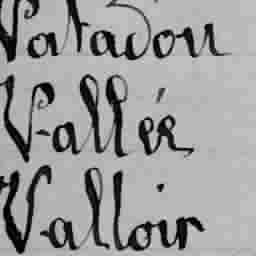 Valadou
Vallée
Valloir